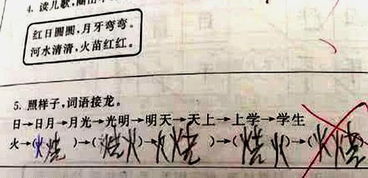 4. 读儿歌，圈出
红日圆圆，月牙弯弯。
河水清清，火苗红红。
5. 照样子，词语接龙。
日→日月→月光→光明→明天→天上→上学→学生
火→(火烧)→(烧火)→(火烧)→(烧火)→(火烧)